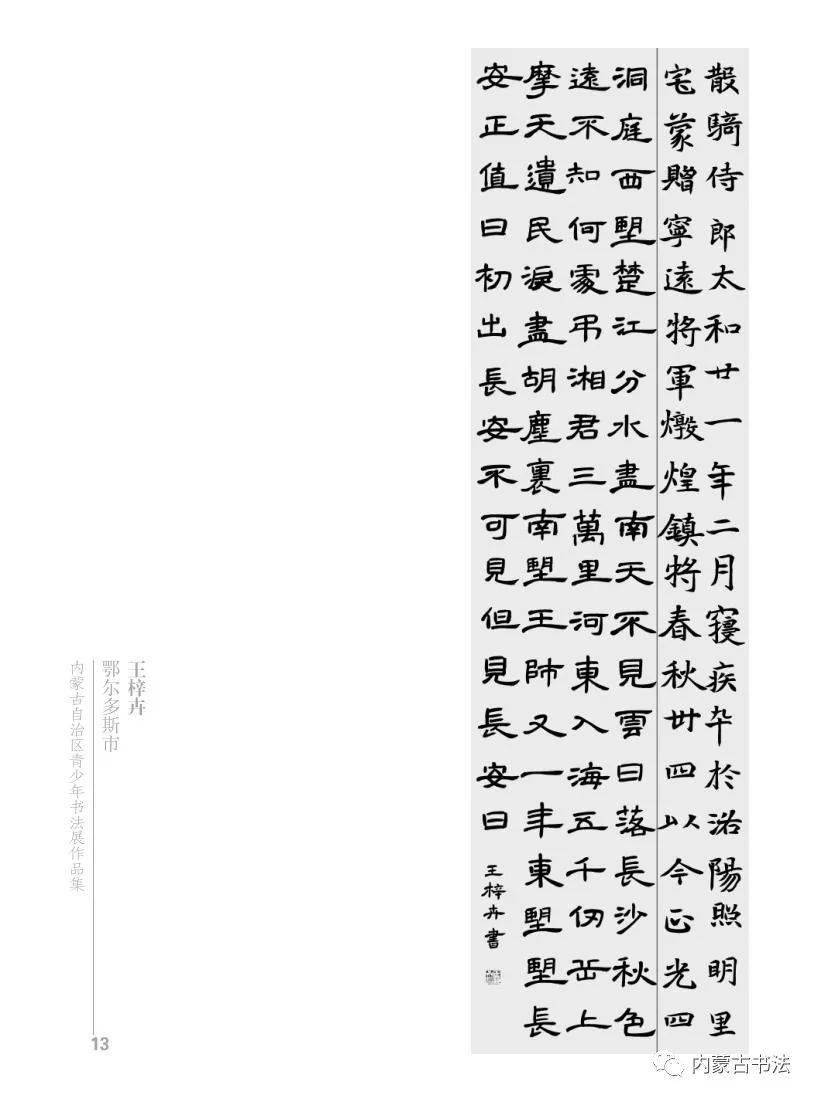 散騎侍郎太和廿一年二月寢疾卒於洛陽照明里
宅蒙贈寧遠將軍燉煌鎮將春秋卅四以今正光四
洞庭西望楚江分水盡南天不見雲日落長沙秋色
遠不知何處弔湘君三萬里河東入海五千仞岳上
摩天遺民淚盡胡塵裏南望王師又一年東望望長
安正值日初出長安不可見但見長安日
王梓卉書
王梓卉
鄂尔多斯市
内蒙古自治区青少年书法展作品集
13
内蒙古书法